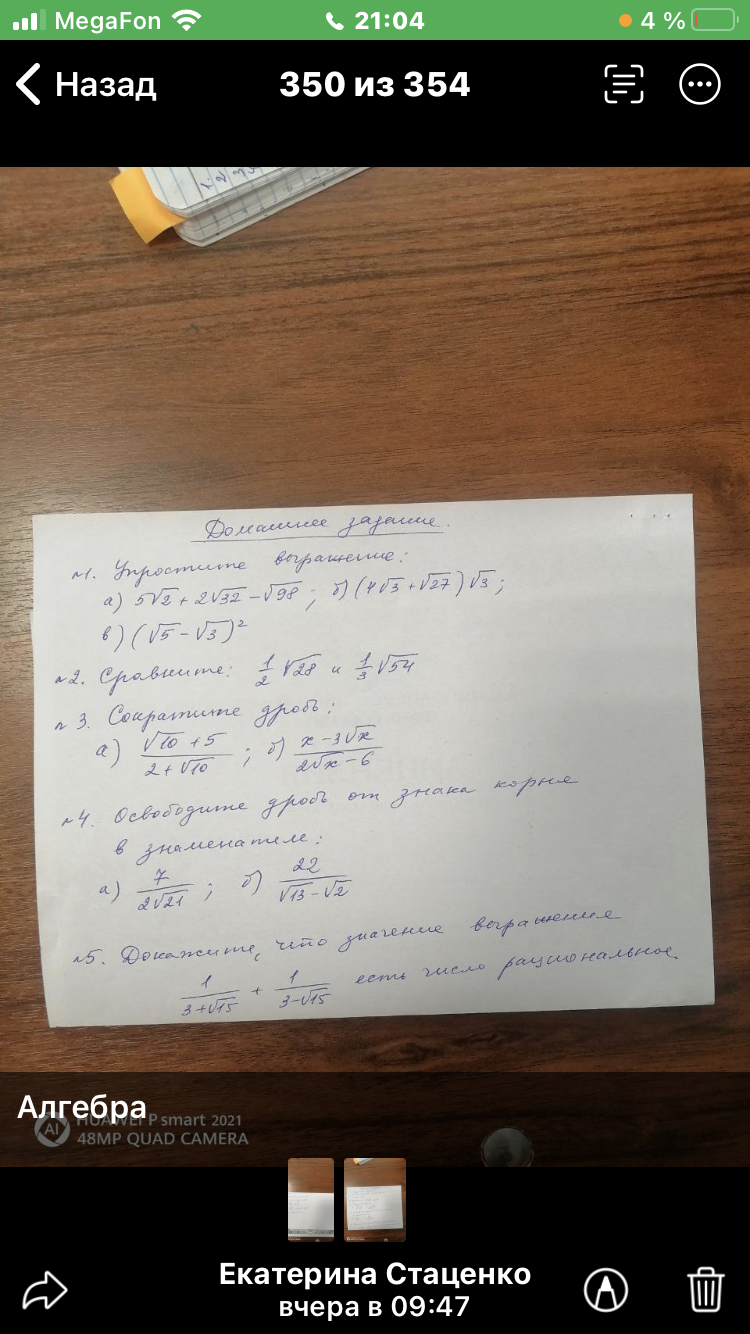 MegaFon 21:04 4 %
Назад 350 из 354
Домашнее задание.
№1. Упростите выражение:
а) 5√2 + 2√32 − √98 ; б) (4√3 + √27)√3 ;
в) (√5 − √3)²
№2. Сравните: 1/2 √28 и 1/3 √54
№3. Сократите дробь:
а) (√10 + 5)/(2 + √10) ; б) (x − 3√x)/(2√x − 6)
№4. Освободите дробь от знака корня
в знаменателе:
а) 7/(2√21) ; б) 22/(√13 − √2)
№5. Докажите, что значение выражения
1/(3+√15) + 1/(3−√15) есть число рациональное.
Алгебра
AI HUAWEI P smart 2021
48MP QUAD CAMERA
Екатерина Стаценко
вчера в 09:47